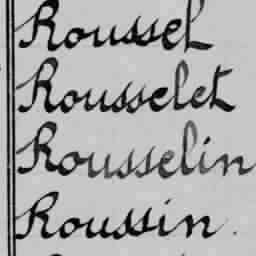 Roussel
Rousselet
Rousselin
Roussin.